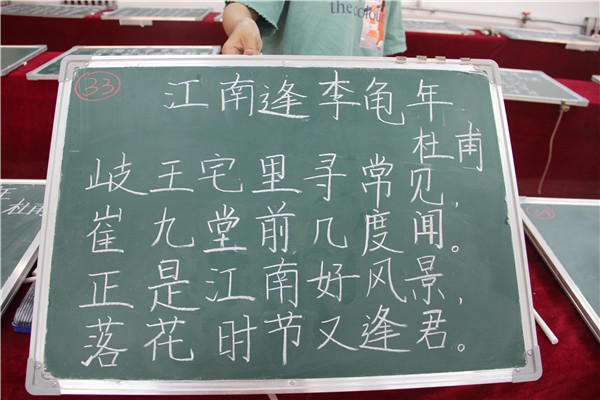 the colour
33
江南逢李龟年
杜甫
岐王宅里寻常见，
崔九堂前几度闻。
正是江南好风景，
落花时节又逢君。